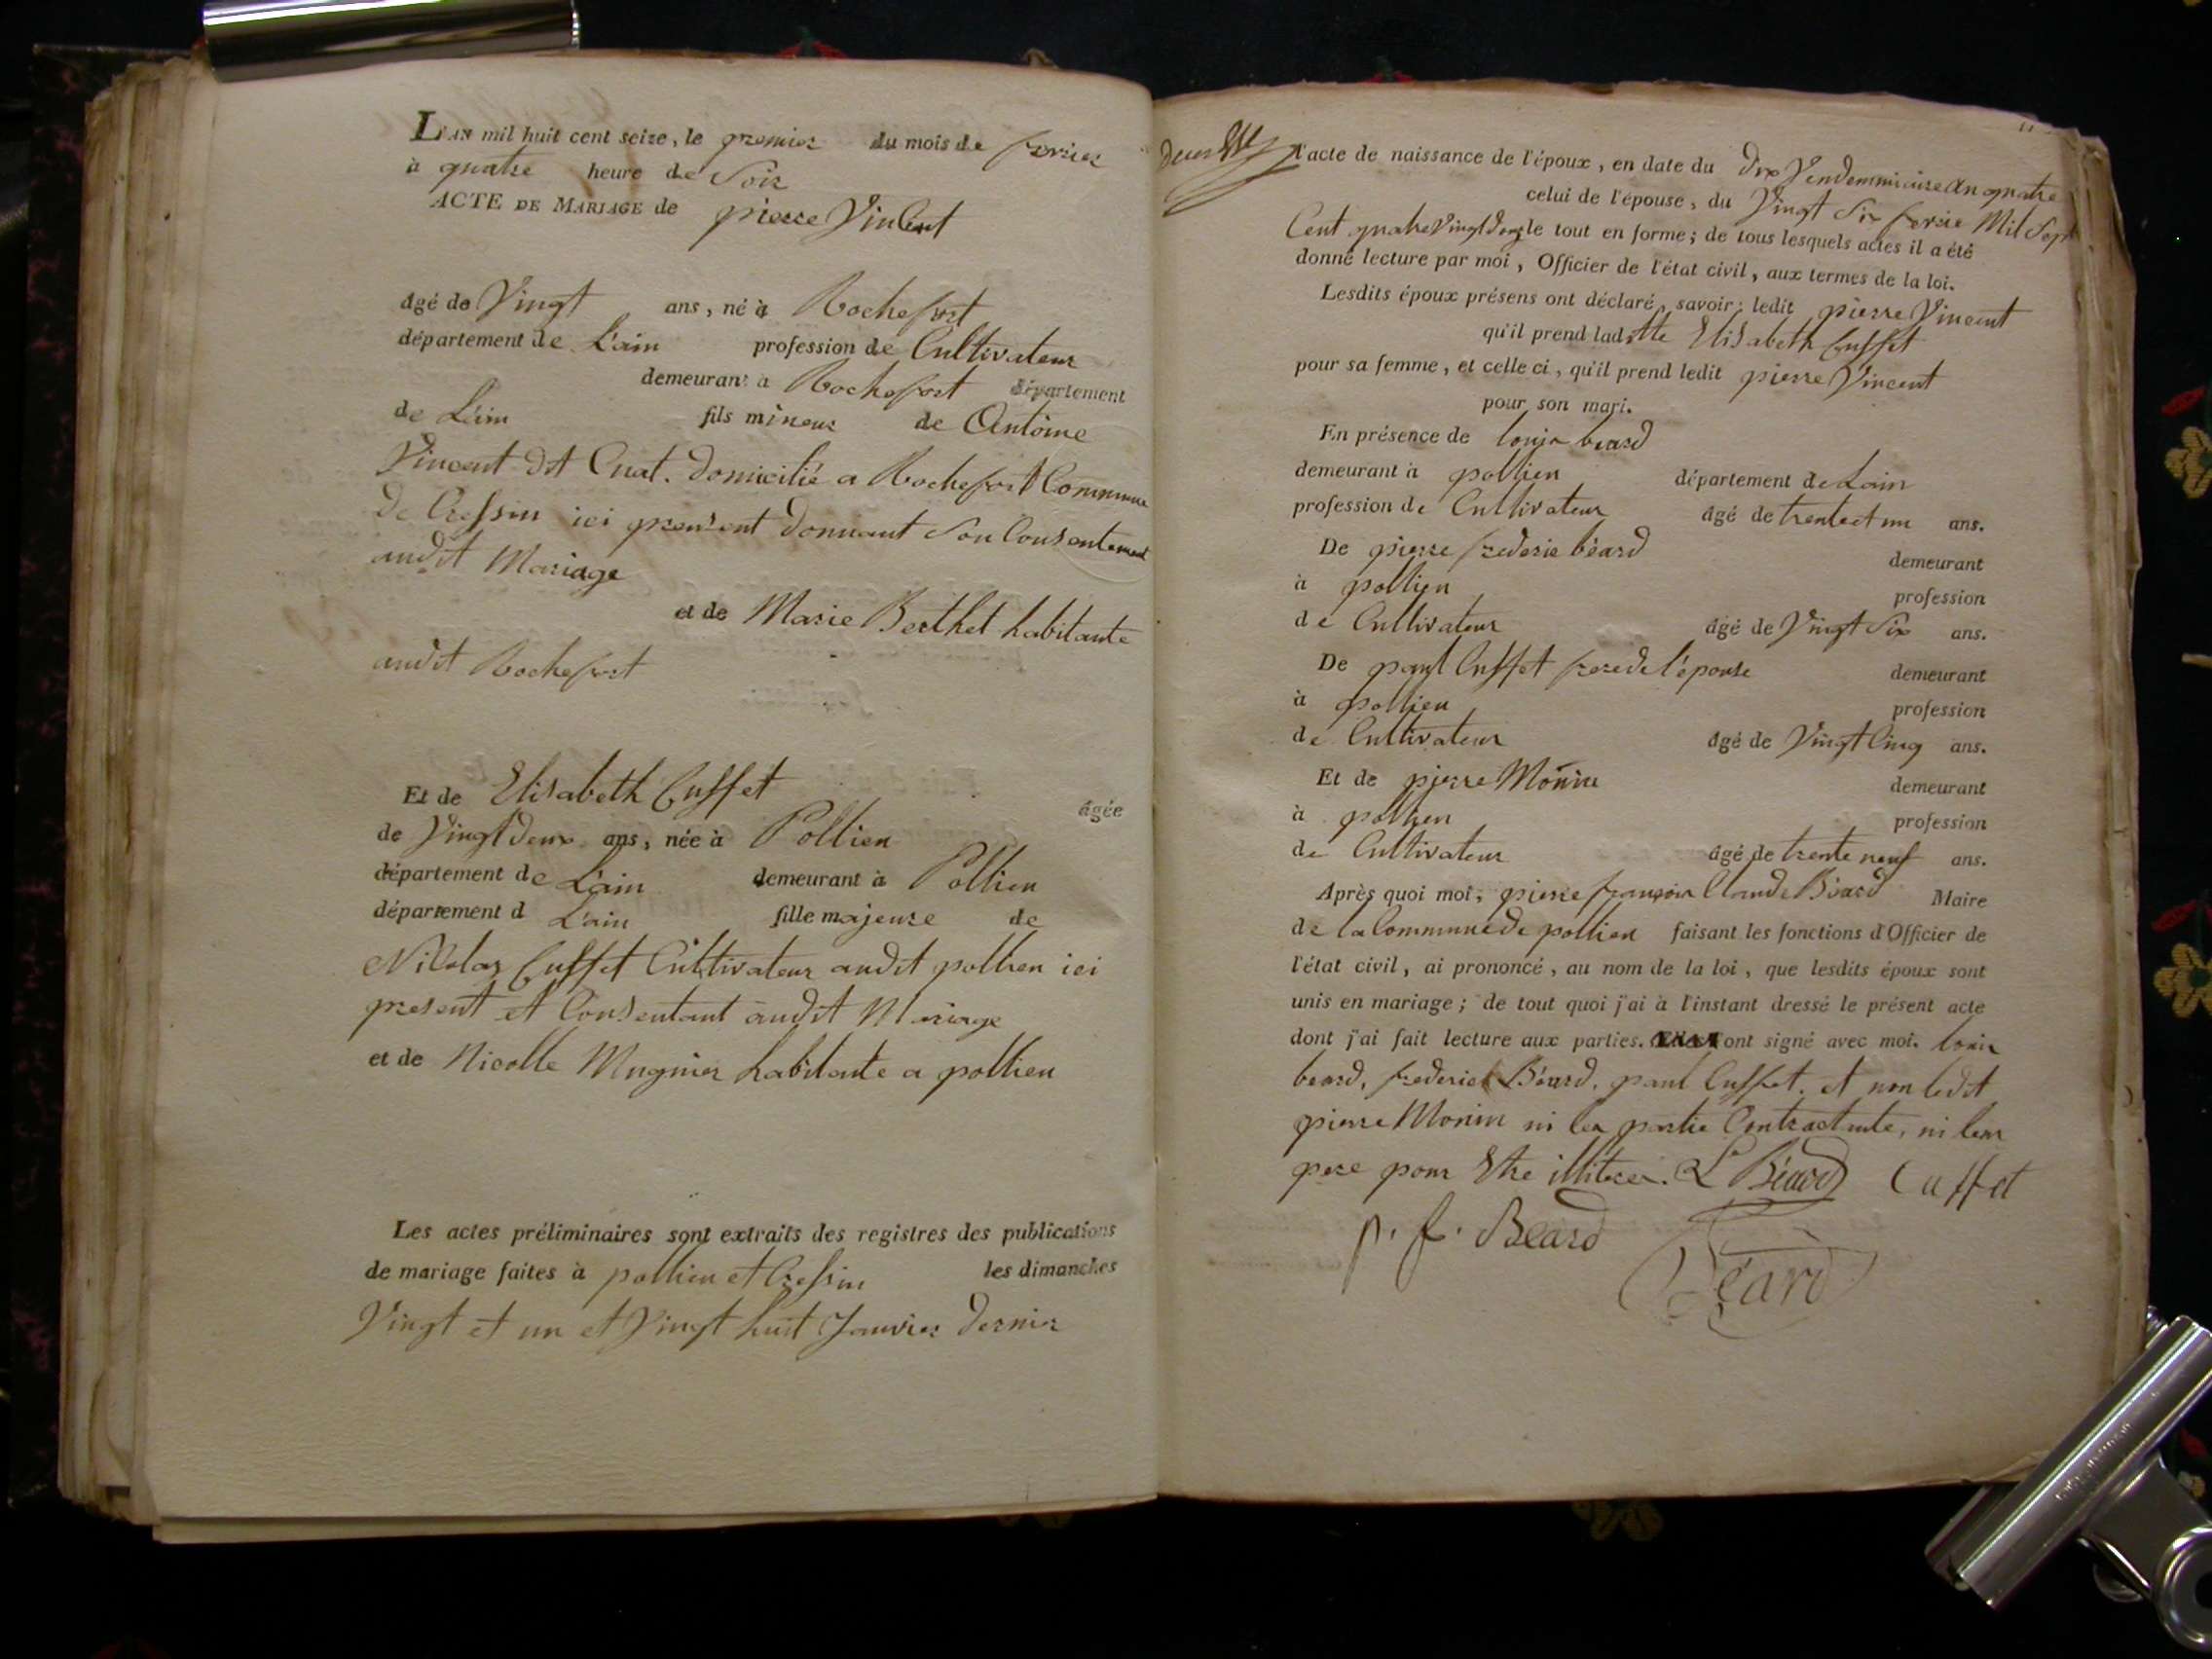 L'AN mil huit cent seize, le premier du mois de fevrier
à quatre heure de Soir
ACTE DE MARIAGE de pierre Vincent
âgé de Vingt ans, né à Rochefort
département de L'ain profession de Cultivateur
demeurant à Rochefort département
de L'ain fils mineur de Antoine
Vincent dit Cuat. domicilié a Rochefort Commune
de Cressin ici present donnant Son Consentement
audit Mariage
et de Marie Berthet habitante
audit Rochefort
Et de Elisabeth Cuffet âgée
de Vingt deux ans, née à Pollien
département de L'ain demeurant à Pollien
département d L'ain fille majeure de
Nicolas Cuffet Cultivateur audit pollien ici
present et Consentant audit Mariage
et de Nicolle Mugnier habitante a pollien
Les actes préliminaires sont extraits des registres des publications
de mariage faites à pollien et Cressin les dimanches
Vingt et un et Vingt huit Janvier dernier
l'acte de naissance de l'époux, en date du dix Vendemmiaire An quatre
celui de l'épouse, du Vingt Six fevrie Mil Sept
Cent quatre Vingt le tout en forme; de tous lesquels actes il a été
donné lecture par moi, Officier de l'état civil, aux termes de la loi.
Lesdits époux présens ont déclaré, savoir; ledit pierre Vincent
qu'il prend laditte Elisabeth Cuffet
pour sa femme, et celle ci, qu'il prend ledit pierre Vincent
pour son mari.
En présence de louis beard
demeurant à pollien département de Lain
profession de Cultivateur âgé de trente et un ans.
De pierre frederic béard demeurant
à pollien profession
de Cultivateur âgé de Vingt Six ans.
De paul Cuffet frere de l'épouse demeurant
à pollien profession
de Cultivateur âgé de Vingt Cinq ans.
Et de pierre Monin demeurant
à pollien profession
de Cultivateur âgé de trente neuf ans.
Après quoi moi, pierre françois Claude Béard Maire
de la Commune de pollien faisant les fonctions d'Officier de
l'état civil, ai prononcé, au nom de la loi, que lesdits époux sont
unis en mariage; de tout quoi j'ai à l'instant dressé le présent acte
dont j'ai fait lecture aux parties. ont signé avec moi. louis
beard, frederic Béard, paul Cuffet. et non ledit
pierre Monin ni les partie Contractante, ni leur
pere pour Etre illiteré. L Béard Cuffet
p. f. Beard
Béard